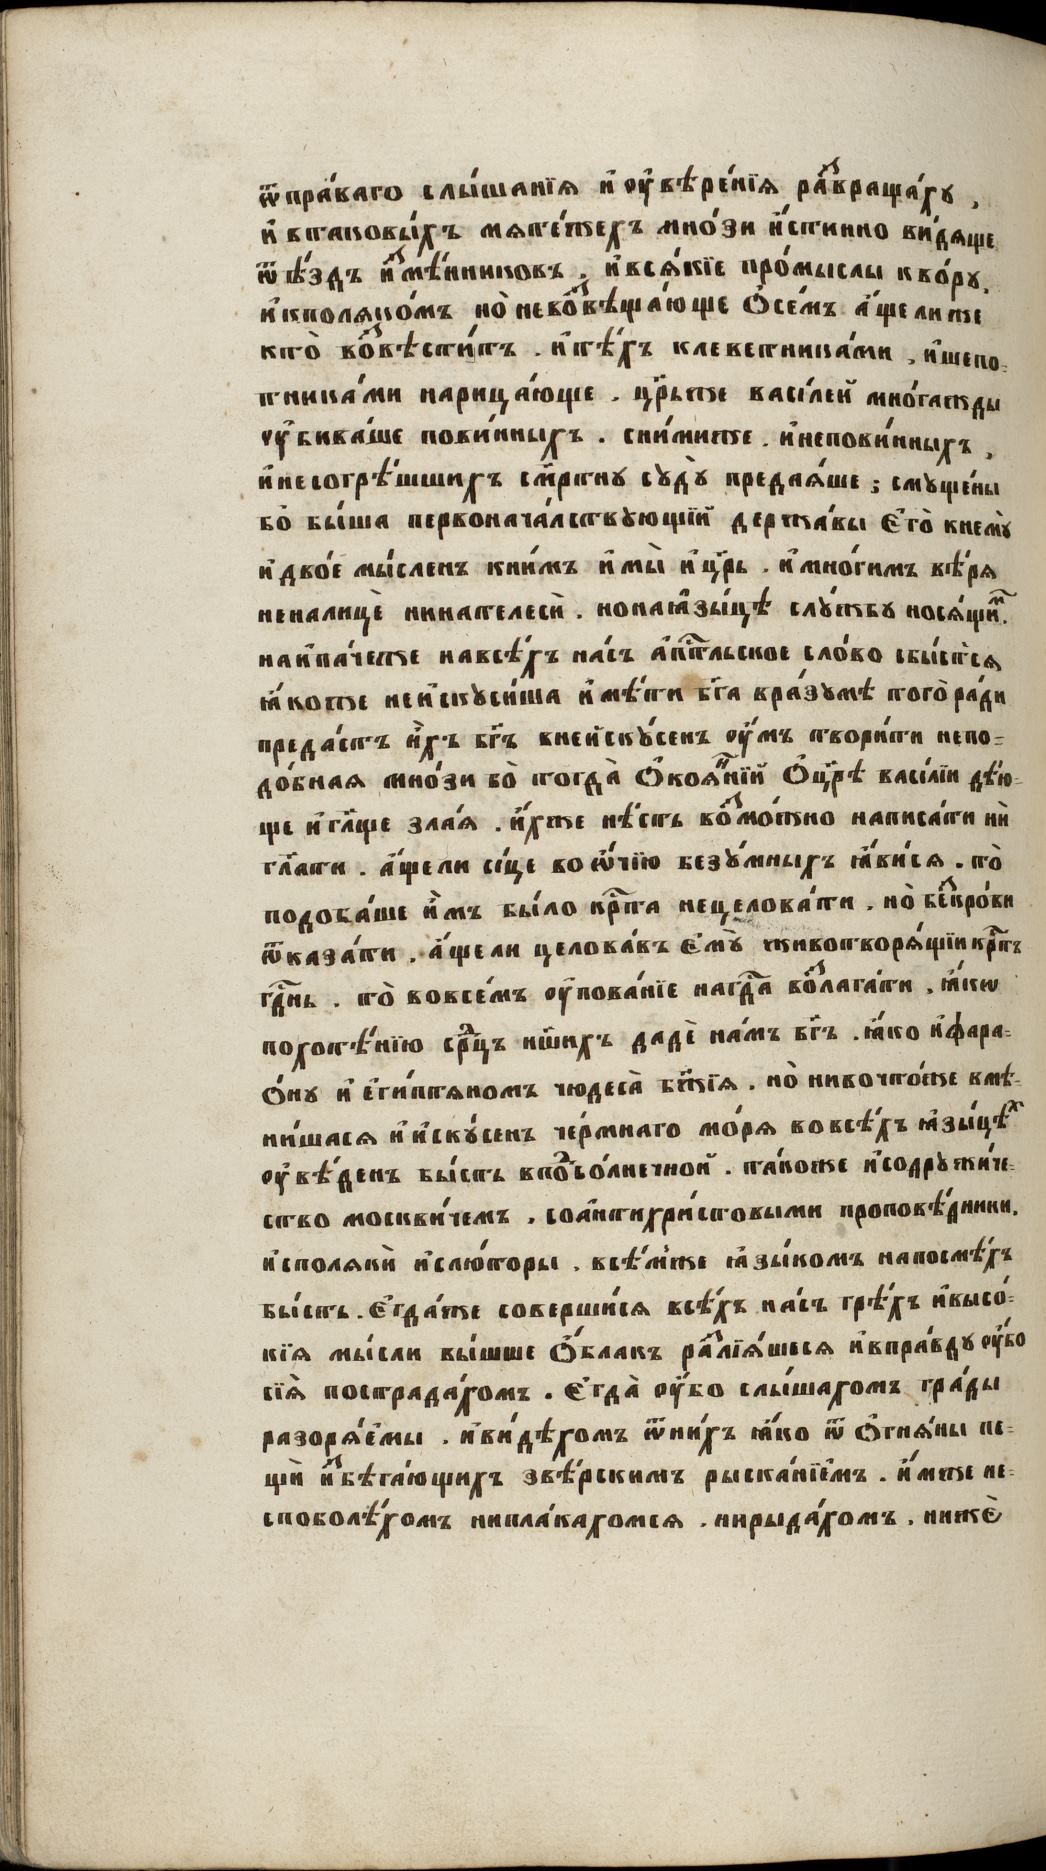 ѿпра́ваго слы́шанїѧ и҆ ᲂу҆вѣре́нїѧ раⷥвраща́хꙋ,
и҆ втаковы́хъ мѧте́жехъ мно́зи и҆́стинно ви́дѧще
ѿѣ́здъ и҆ⷥмѣ́нниковъ. и҆всѧ́кїе про́мыслы кво́рꙋ.
и҆кполѧко́мъ но̀ невоⷥвѣща́юще ѻ҆се́мъ а҆́щелиже
кто̀ воⷥвѣсти́тъ. и҆тѣ́хъ клеветника́ми, и҆шепо-
тника́ми нарица́юще. цр҃ьже васи́лей мно́гажды
ᲂу҆бива́ше пови́нныхъ. сни́миже. и҆непови́нныхъ,
и҆несогрѣ́шшихъ см҃ртнꙋ сꙋдꙋ̀ предаѧ́ше; смꙋще́ны
бо̀ бы́ша первонача́лствꙋющїй держа́вы є҆гѡ̀ кнемꙋ̀
и҆ дво́е мы́сленъ кни́мъ и҆ мы̀ и҆ цр҃ь. и҆ мно́гимъ вѣ́рѧ
неналицѐ нинателесѝ. нонаꙗ҆зы́цѣ слꙋ́жбꙋ носѧ́щиⷨ.
наипа́чеже навсѣ́хъ на́съ а҆пⷭ҇льское сло́во сбы́стсѧ
ꙗ҆́коже неи҆скꙋси́ша и҆мѣ́ти бг҃а вра́зꙋмѣ тогѡ̀ ра́ди
преда́стъ и҆̀хъ бг҃ъ внейскꙋ́сенъ ᲂу҆́мъ твори́ти непо-
до́бнаѧ мно́зи бо̀ тогда̀ ѻ҆коѧ́нⷩїй ѻ҆цр҃ѣ васи́лїи дѣ́ю-
ще и҆ гл҃ще зла́ѧ. и҆́хже нѣ́сть воⷥмо́жно написа́ти нѝ
гл҃ати. а҆́щели си́це во ѻ҆́чїю безꙋ́мныхъ ꙗ҆ви́сѧ. то̀
подоба́ше и҆̀мъ бы́ло крⷭ҇та нецелова́ти, но̀ беⷥкро́ви
ѿказа́ти. а҆́щели целова́въ є҆мꙋ̀ животворѧ́щїи крⷭ҇тъ
гдⷭ҇нь. то̀ вовсе́мъ ᲂу҆пова́нїе нагдⷭ҇а воⷥлага́ти, ꙗ҆́кѡ
похотѣ́нїю срⷣцъ на́шихъ дадѐ на́мъ бг҃ъ. ꙗ҆́ко и҆фара-
ѻ́нꙋ и҆ є҆ги́птѧномъ чюдеса̀ бж҃їѧ. но̀ нивочто́же вмѣ-
ни́шасѧ и҆ и҆скꙋ́сенъ че́рмнаго мо́рѧ вовсѣ́хъ ꙗ҆зы́цѣⷯ
ᲂу҆вѣ́денъ бы́сть впоⷣсо́лнечной. та́коже и҆содрꙋ́жиче-
ство москви́чемъ, соа҆нтихри́стовыми проповѣ́дники.
и҆сполѧкѝ и҆слю́торы. всѣ́мже ꙗ҆зы́комъ напосмѣ́хъ
бы́сть. є҆гда́же соверши́сѧ всѣ́хъ на́съ грѣ́хъ и҆высо́-
кїѧ мы́сли вы́шше ѻ҆́блакъ раⷥлїѧ́шесѧ и҆впра́вдꙋ ᲂу҆́бо
сїѧ̀ пострада́хомъ. є҆гда̀ ᲂу҆́бо слы́шахомъ гра́ды
разорѧ́емы. и҆ви́дѣхомъ ѿни́хъ ꙗ҆́ко ѿ ѻ҆гнѧ́ны пе-
щѝ и҆ⷥбѣга́ющихъ звѣ́рскимъ рыска́нїемъ. и҆́мже не-
споболѣ́хомъ нипла́кахомсѧ. нирыда́хомъ, нижѐ